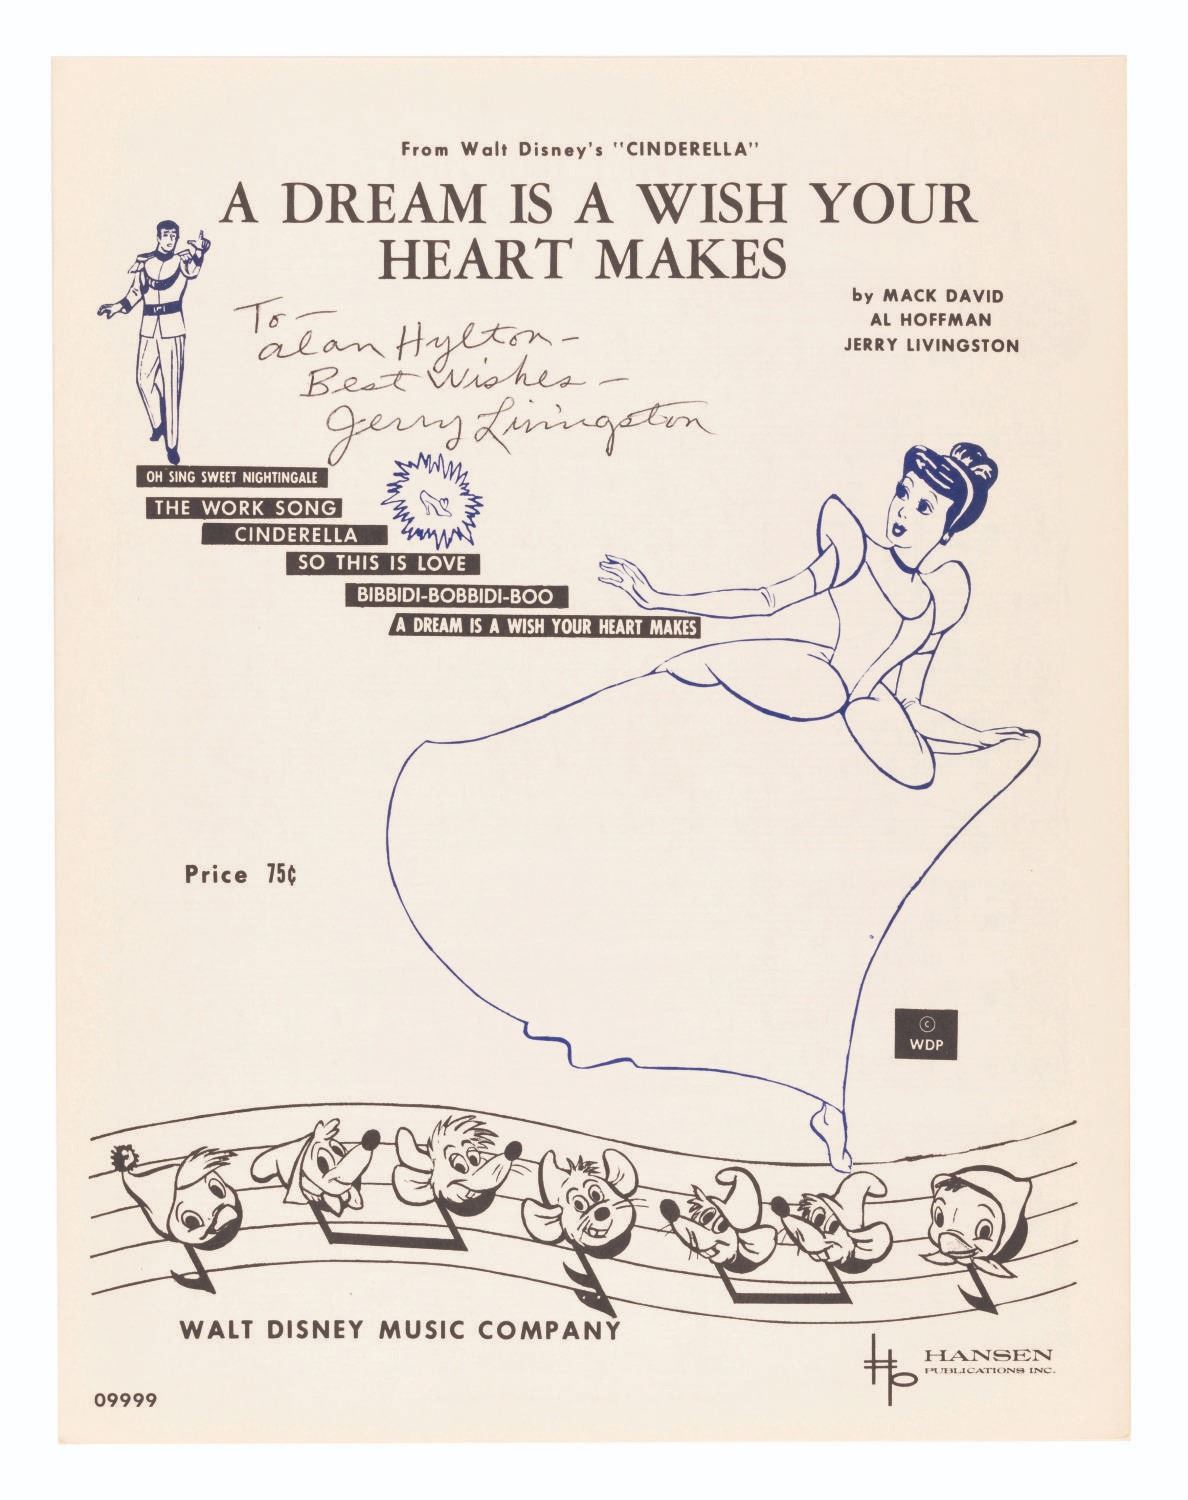 From Walt Disney's "CINDERELLA"
A DREAM IS A WISH YOUR
HEART MAKES
by MACK DAVID
AL HOFFMAN
JERRY LIVINGSTON
To –
Alan Hylton –
Best Wishes –
Jerry Livingston
OH SING SWEET NIGHTINGALE
THE WORK SONG
CINDERELLA
SO THIS IS LOVE
BIBBIDI-BOBBIDI-BOO
A DREAM IS A WISH YOUR HEART MAKES
Price 75¢
©
WDP
WALT DISNEY MUSIC COMPANY
HP
HANSEN
PUBLICATIONS INC.
09999